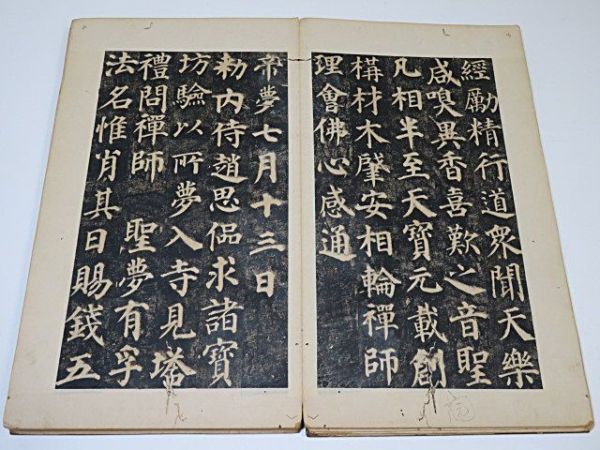 經勵精行道衆聞天樂
咸嗅異香喜歎之音聖
凡相半至天寶元載創
構材木肇安相輪禪師
理會佛心感通
帝夢七月十三日
勑內侍趙思偘求諸寶
坊驗以所夢入寺見塔
禮問禪師 聖夢有孚
法名惟肖其日賜錢五